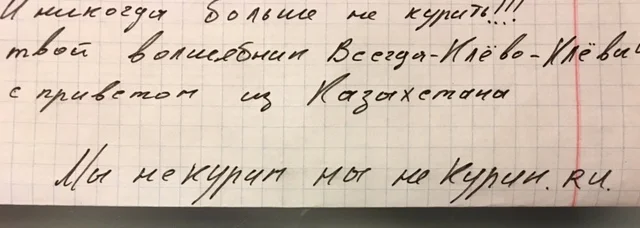 И никогда больше не курить!!!
твой волшебник Всегда-Клёво-Клёвый
с приветом из Казахстана
Мы не курим мы не Курим.RU.